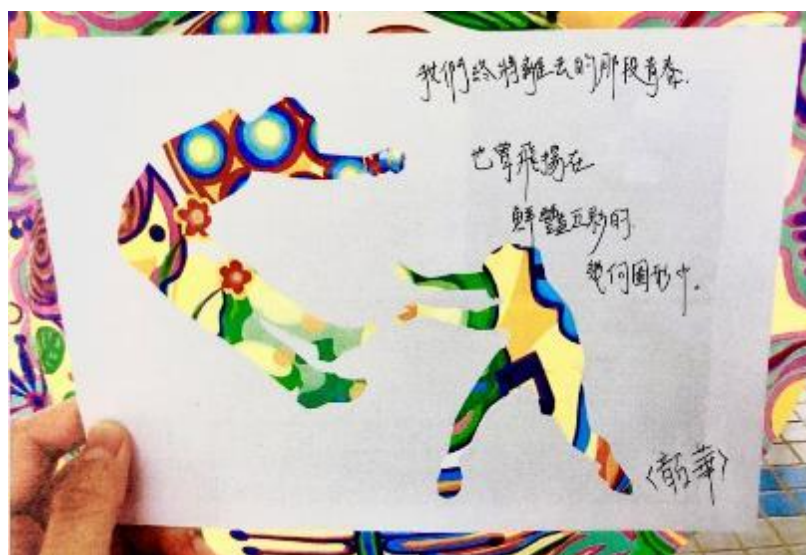 我們終將離去的那段青春.
也曾飛揚在
鮮豔五彩的
幾何圖形中。
〈韶華〉